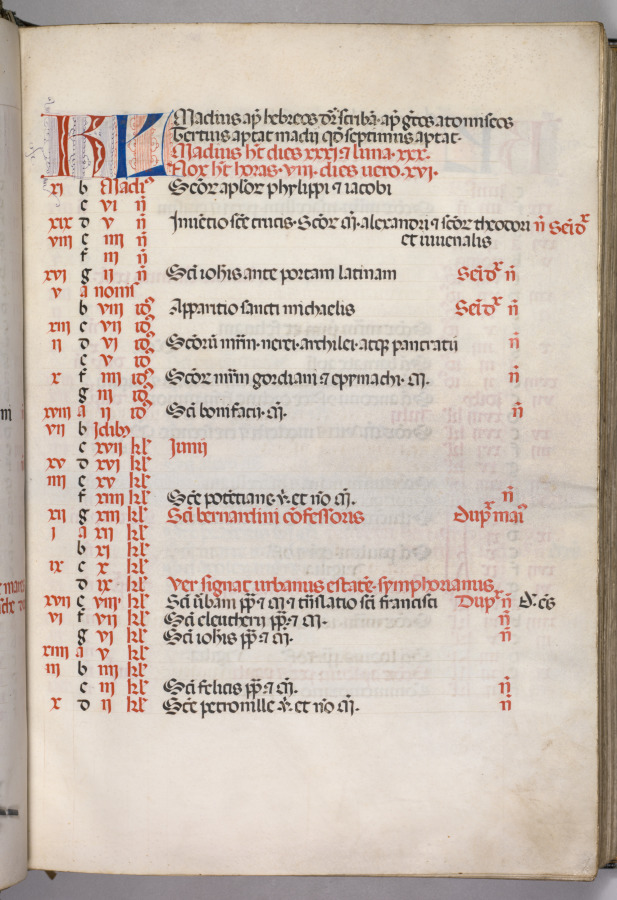 KL Madius ap̄ hebreos dr̄ scribā. ap̄ gr̄cos atomiseos
Tertius aptat madii q̄ septimus aptat.
Madius hēt dies xxxi ⁊ luna. xxx.
Nox hēt horas. viii. dies uero. xvi.
xi b Madii Scōꝝ aplōꝝ phylippi ⁊ iacobi
c vi n̄
xix d v n̄ Inuētio scē crucis. Scōꝝ m̄. alexandri ⁊ scōꝝ theodori n̄ Semidꝝ
viii e iiii n̄ et iuuenalis
f iii n̄
xvi g ii n̄ Scī iohīs ante portam latinam Semidꝝ n̄
v a nonis
b viii id9 Apparitio sancti michaelis Semidꝝ n̄
xiii c vii id9
ii d vi id9 Scōrū mr̄m. nerei. archilei. atqꝫ pancratii n̄
e v id9
x f iiii id9 Scōꝝ mr̄m gordiani ⁊ epymachi. m̄. n̄
g iii id9
xviii a ii id9 Scī bonifacii. m̄. n̄
vii b Idib9
c xvii kl Iunii
xv d xvi kl
iiii e xv kl
f xiiii kl Scē potētiane. v̄. et nō m̄. n̄
xii g xiii kl Scī bernardini cōfessoris Dupꝝ maī
i a xii kl
b xi kl
ix c x kl
d ix kl Ver signat urbanus estatē. symphorianus.
xvii e viii kl Scī ūbani pp̄ ⁊ m̄ ⁊ trn̄slatio scī francisci Dupꝝ n̄
vi f vii kl Scī eleutherii pp̄ ⁊ m̄. n̄
g vi kl Scī iohīs pp̄ ⁊ m̄. n̄
xiiii a v kl
iii b iiii kl
c iii kl Scī felicis pp̄ ⁊ m̄. n̄
x d ii kl Scē petronille v̄. et nō m̄. n̄